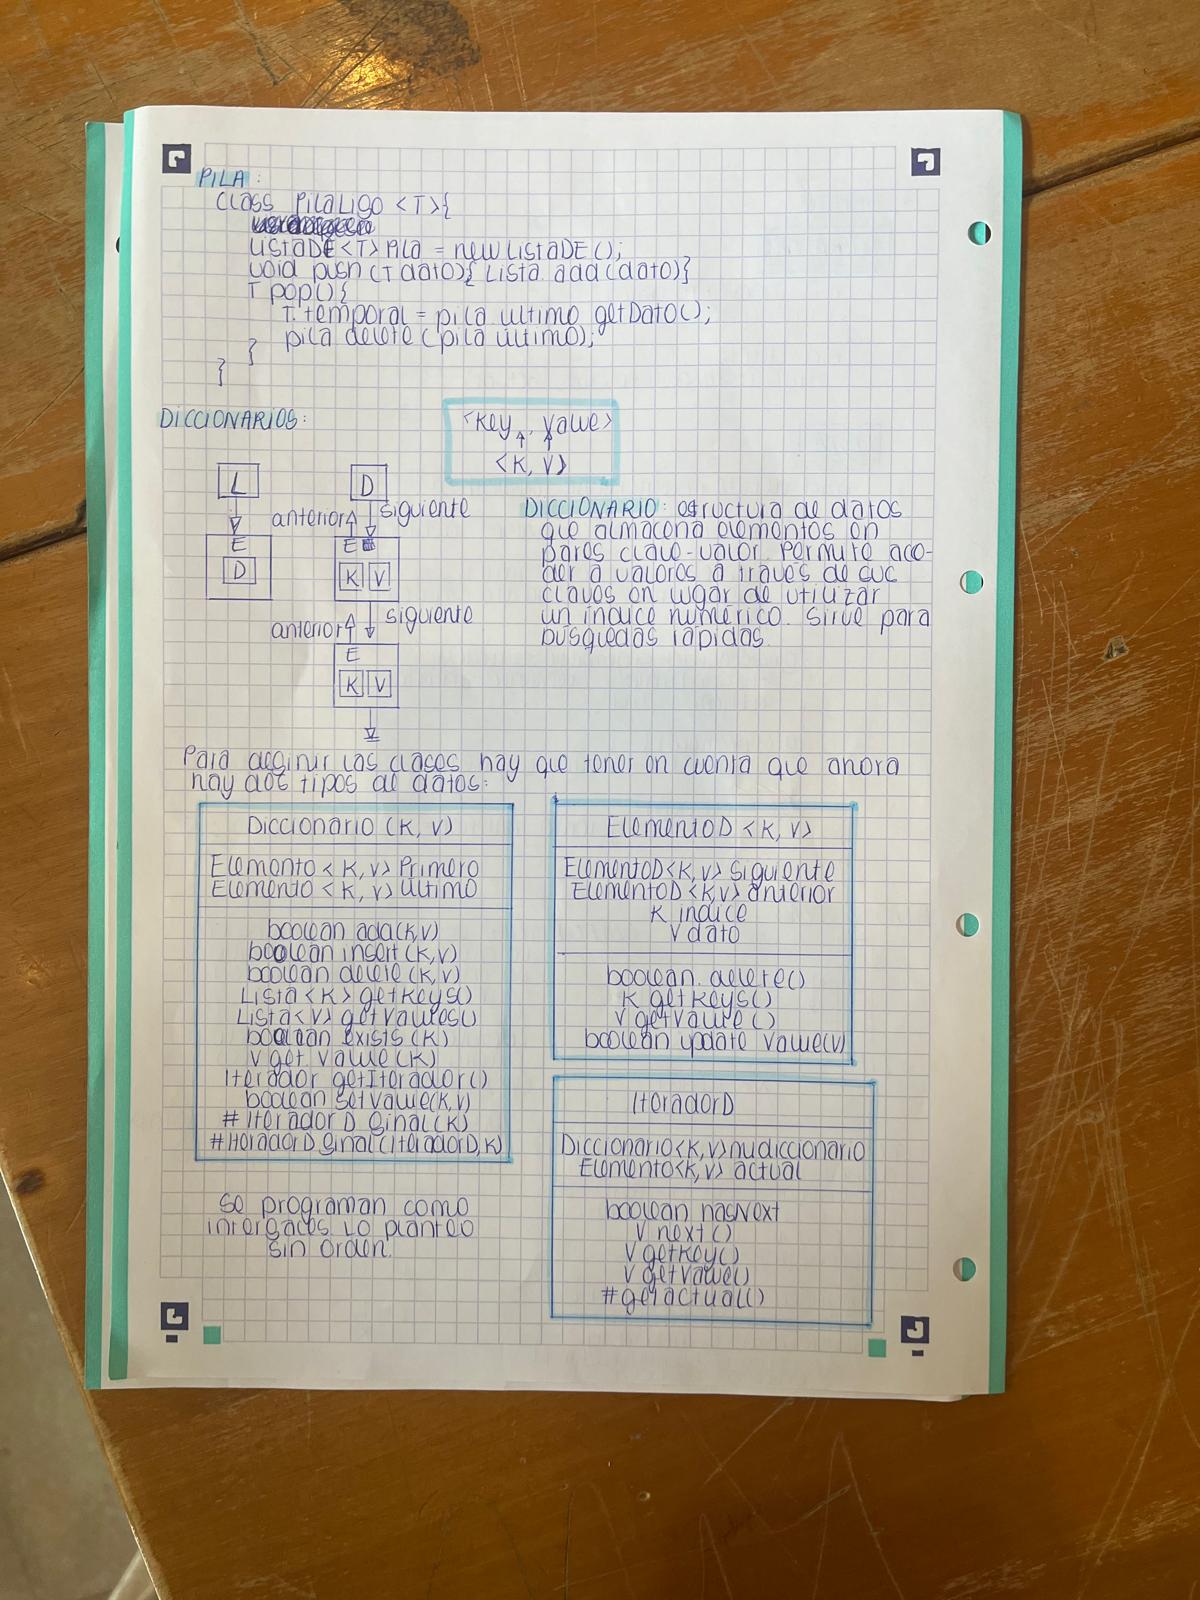 PILA:
class PilaLIGO <T>{
ListaDE<T> Pila = new ListaDE();
void push (T dato){ Lista add(dato)}
T pop(){
T. temporal = pila ultimo getDato();
pila delete (pila ultimo);
}
}
DICCIONARIOS:
<key, value>
<K, V>
L
D
anterior
siguiente
E
D
E
K V
anterior
siguiente
E
K V
DICCIONARIO: estructura de datos
que almacena elementos en
pares clave-valor. Permite acce-
der a valores a través de sus
claves en lugar de utilizar
un índice numérico. Sirve para
búsquedas rápidas.
Para definir las clases hay que tener en cuenta que ahora
hay dos tipos de datos:
Diccionario (K, V)
Elemento <K, V> Primero
Elemento <K, V> Ultimo
boolean add(K,V)
boolean insert (K,V)
boolean delete (K,V)
Lista <K> getKeys()
Lista<V> getValues()
boolean exists (K)
V get Value (K)
Iterador getIterador()
boolean setValue(K,V)
# Iterador D final (K)
#IteradorD final (IteradorD, K)
Se programan como
interfaces. Lo planteo
sin orden.
ElementoD <K, V>
ElementoD<K, V> siguiente
ElementoD <K,V> anterior
K indice
V dato
boolean. delete()
K getKeys()
V getValue ()
boolean update Value(V)
IteradorD
Diccionario<K, V> mi diccionario
Elemento<K, V> actual
boolean hasNext
V next ()
V getKey()
V getValue()
#getactual()